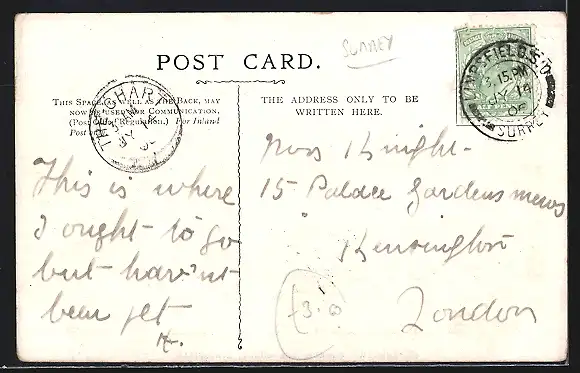 SURREY
POST CARD.
THIS SPACE, AS WELL AS THE BACK, MAY
NOW BE USED FOR COMMUNICATION.
(Post Office Regulation.) For Inland
Post only.
THE ADDRESS ONLY TO BE
WRITTEN HERE.
THE CHART
JY 14
LIMPSFIELD S.O
3 15 PM
JY 14
SURREY
This is where
I ought to go
but hav'nt
been yet
Knight
15 Palace Gardens mews
Kensington
London
£3.0